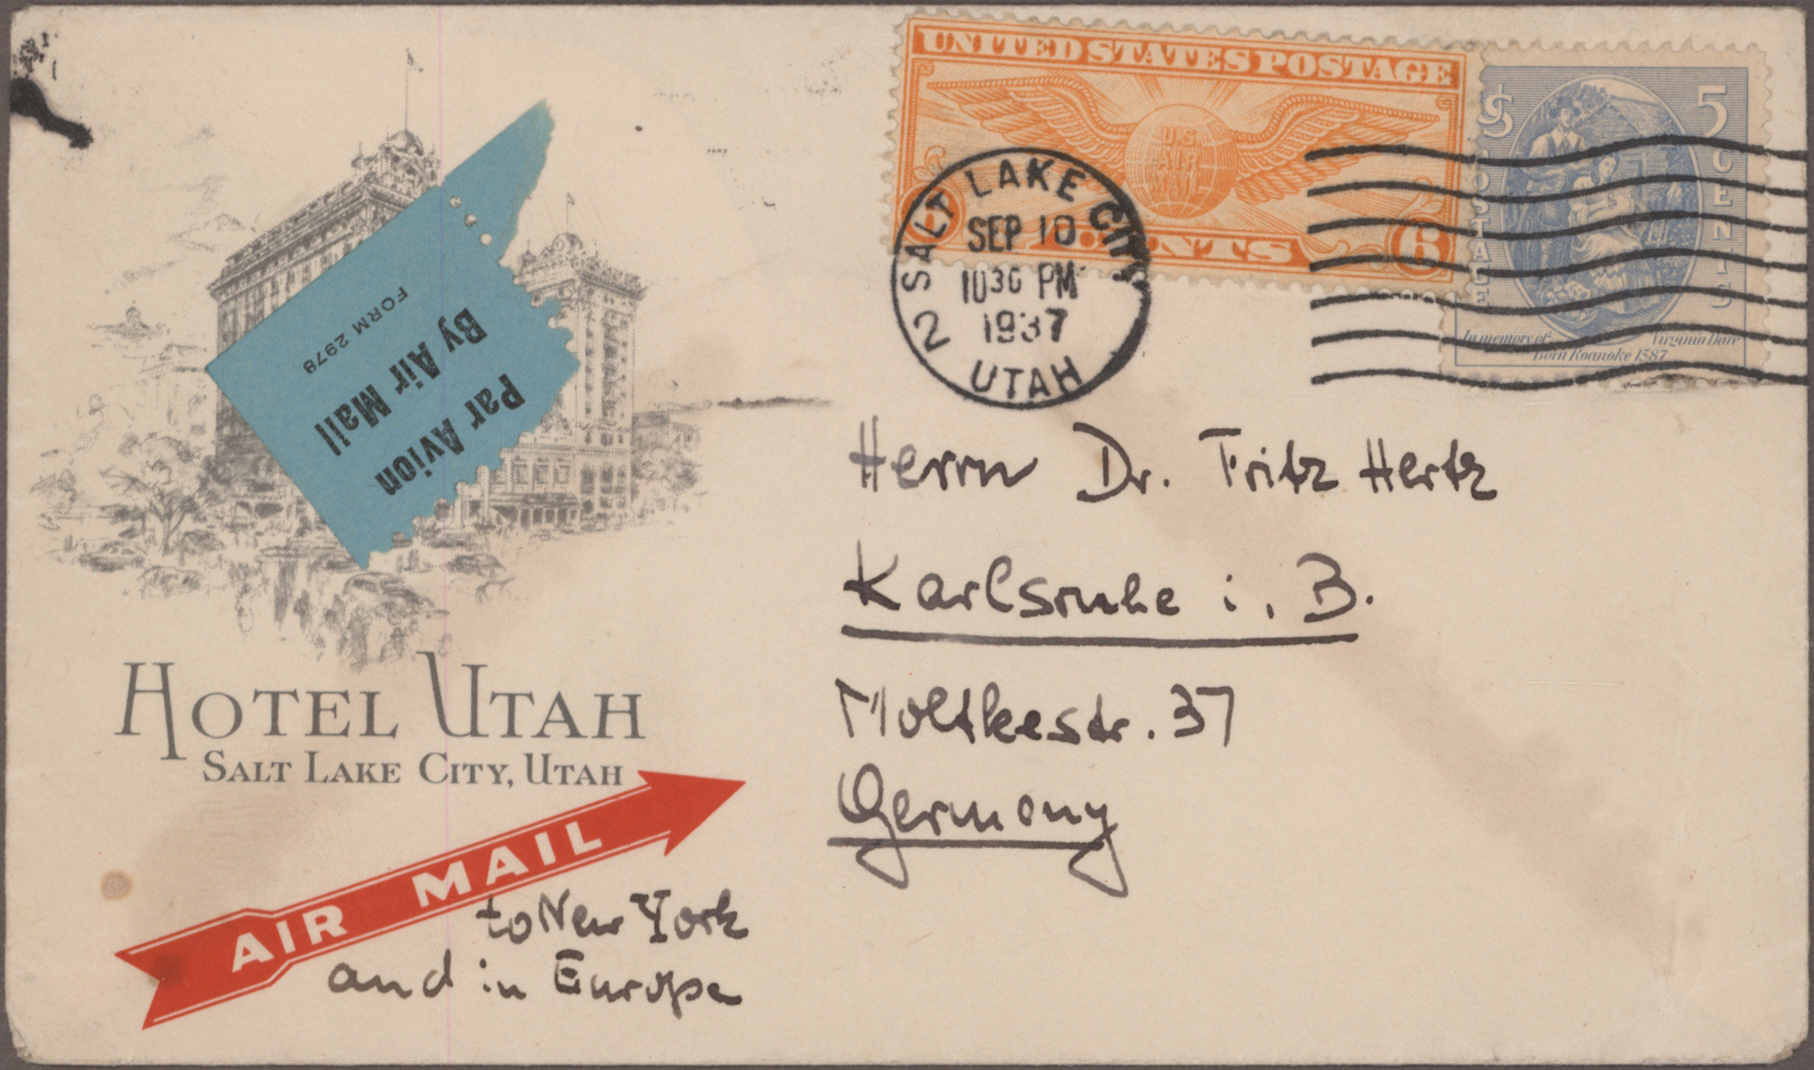 UNITED STATES POSTAGE
U.S.
AIR
MAIL
6 CENTS 6
5 ¢
5
POSTAGE
CENTS
In memory of Virginia Dare
Born Roanoke 1587
SALT LAKE CITY
SEP 10
1030 PM
1937
2 UTAH
FORM 2978
By Air Mail
Par Avion
HOTEL UTAH
SALT LAKE CITY, UTAH
AIR MAIL
to New York
and in Europe
Herrn Dr. Fritz Hertz
Karlsruhe i. B.
Moltkestr. 37
Germany